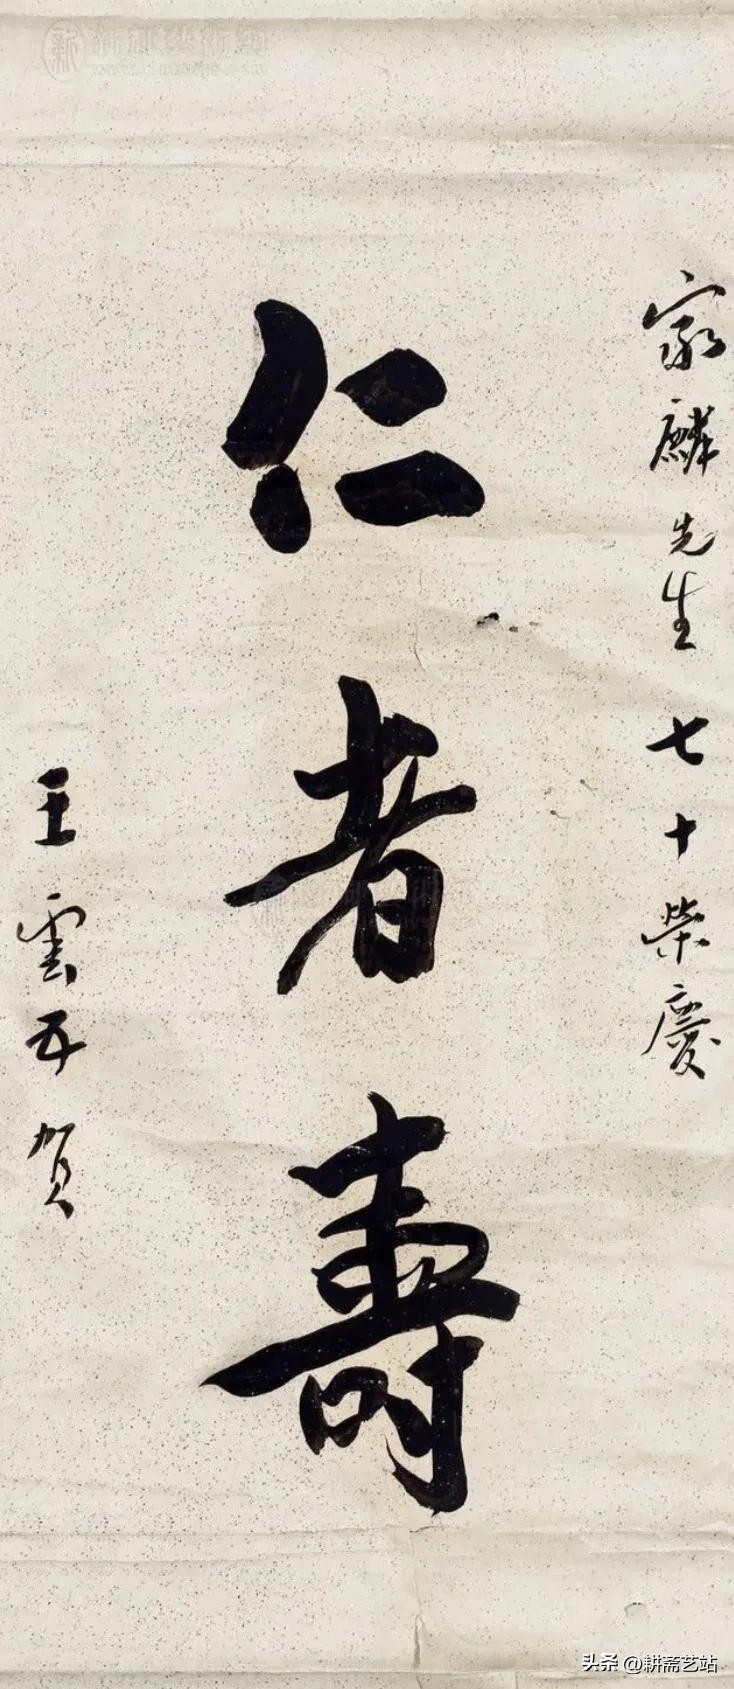 家麟先生七十榮慶
仁者壽
王雲五賀
头条 @耕斋艺站